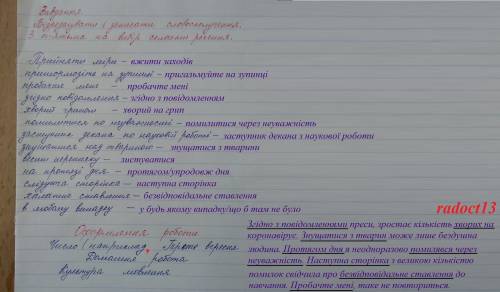 Завдання.
Відредагувати і записати словосполучення.
З п'ятьма на вибір скласти речення.
Прийняти міри – вжити заходів
пригальмуйте на зупинці
пробачте мене – пробачте мені
згідно повідомлення – згідно з повідомленням
хворий грипом – хворий на грип
помилитися по неуважності – помилитися через неуважність
заступник декана по науковій роботі – заступник декана з наукової роботи
знущатися над твариною – знущатися з тварини
вести переписку – листуватися
на протязі дня – протягом/упродовж дня
слідуюча сторінка – наступна сторінка
халатне ставлення – безвідповідальне ставлення
в любому випадку – у будь якому випадку/що б там не було
radoct13
Оформлення роботи
Число (наприклад, Перше вересня
Домашня робота
культура мовлення
Згідно з повідомленнями преси, зростає кількість хворих на
коронавірус. Знущатися з тварин може лише бездушна
людина. Протягом дня я неодноразово помилявся через
неуважність. Наступна сторінка з великою кількістю
помилок свідчила про безвідповідальне ставлення до
навчання. Пробачте мені, таке не повториться.